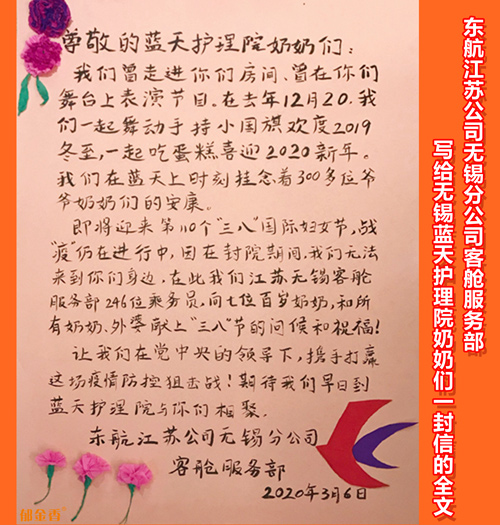 东航江苏公司无锡分公司客舱服务部
写给无锡蓝天护理院奶奶们一封信的全文
尊敬的蓝天护理院奶奶们：
我们曾走进你们房间、曾在你们
舞台上表演节目。在去年12月20.我
们一起舞动手持小国旗欢度2019
冬至，一起吃蛋糕喜迎2020新年。
我们在蓝天上时刻挂念着300多位爷
爷奶奶们的安康。
即将迎来第110个“三八”国际妇女节，战
“疫”仍在进行中，因在封院期间，我们无法
来到你们身边，在此我们江苏无锡客舱
服务部246位乘务员，向七位百岁奶奶，和所
有奶奶、外婆献上“三八”节的问候和祝福！
让我们在党中央的领导下，携手打赢
这场疫情防控狙击战！期待我们早日到
蓝天护理院与你们相聚。
东航江苏公司无锡分公司
客舱服务部
2020年3月6日
郁金香